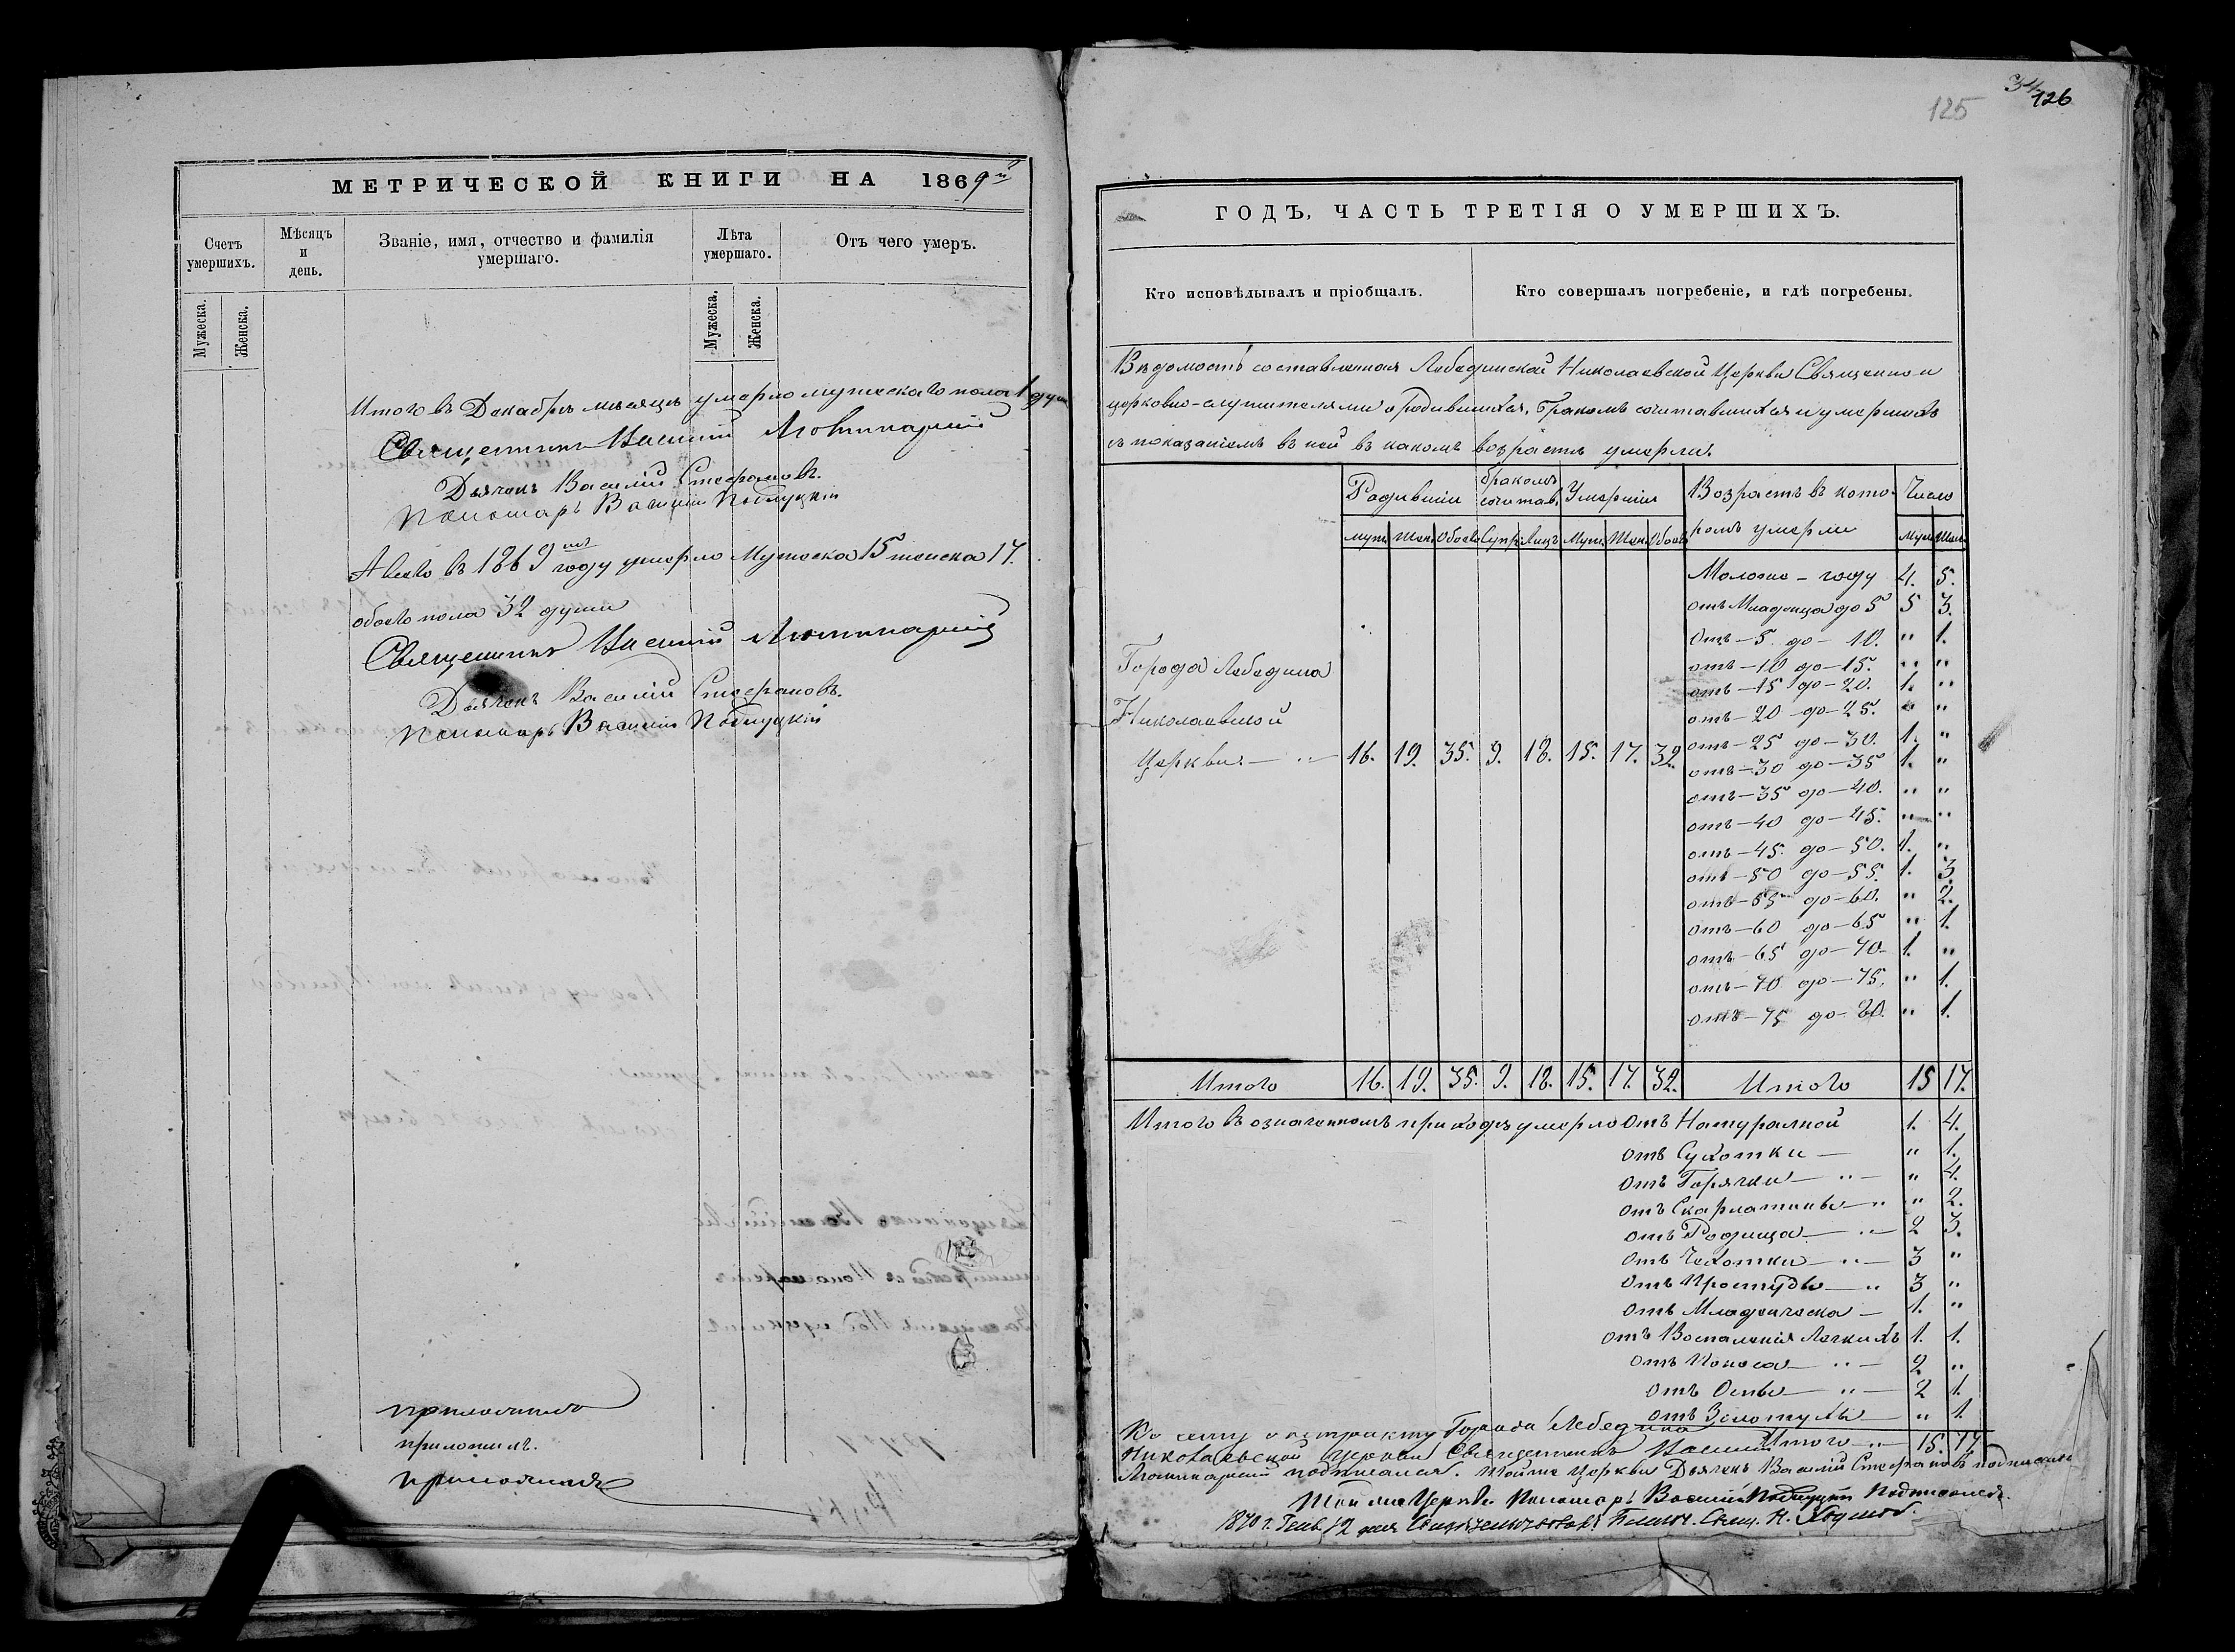 МЕТРИЧЕСКОЙ КНИГИ НА 1869й
Счетъ умершихъ.
Мѣсяцъ и день.
Званіе, имя, отчество и фамилія умершаго.
Лѣта умершаго.
Отъ чего умеръ.
Мужеска.
Женска.
Мужеска.
Женска.
Итого въ Декабрѣ мѣсяцѣ умерло мужескаго пола 1 душ
Священникъ
Дьячекъ Василій Стефановъ.
Пономарь Василій
А всего въ 1869мъ году умерло Мужеска 15 женска 17.
обоего пола 32 души
Священникъ
Дьячекъ Василій Стефановъ.
Пономарь Василій
приложилъ.
125
34
126
ГОДЪ, ЧАСТЬ ТРЕТІЯ О УМЕРШИХЪ.
Кто исповѣдывалъ и пріобщалъ.
Кто совершалъ погребеніе, и гдѣ погребены.
Вѣдомость составленная Лебединской Николаевской Церкви Священно и
церковно-служителями о Родившихся, Бракомъ сочитавшихся и умершихъ
съ показаніемъ въ ней въ какомъ возрастѣ умерли.
Родившіи Бракомъ сочитав. Умершіи Возрастъ въ кото- Число
муж. Жен. Обоего Супр. Лицъ Муж. Жен. Обоего ромъ умерли муж. Жен.
4. 5.
отъ Младенца до 5 5 3.
Отъ – 5. до – 10. " 1.
отъ – 10 до – 15. " "
отъ – 15 до – 20. 1. "
отъ – 20 до – 25. " "
отъ – 25 до – 30. 1. "
отъ – 30 до – 35 1. "
отъ – 35 до – 40. " "
отъ – 40 до – 45. " "
отъ – 45. до – 50. 1. "
отъ – 50 до – 55. 1. 3.
отъ – 55 до – 60. " 2.
отъ – 60 до – 65 " 1.
отъ – 65 до – 70 1. "
отъ – 70 до – 75. " 1.
отъ – 75 до – 80. " 1.
Города Лебедина
Николаевской
Церкви – " – 16. 19. 35. 9. 18. 15. 17. 32.
Итого 16. 19. 35. 9. 18. 15. 17. 32. Итого 15 17.
Итого въ означенномъ приходѣ умерло Отъ Натуралной 1. 4.
отъ Сухотки – " 1.
отъ Горячки – " – " 4.
отъ Скарлатины – " " 2.
отъ Родимца – " – 2 3.
отъ Чехотки – " – 3 "
отъ Простуды – " 3 "
отъ Младенческа – 1. "
отъ Воспаленія Легкихъ 1. 1.
отъ Поноса – " – 2 "
отъ Оспы – " – 2 1.
отъ Золотухи – " 1.
Итого – " – 15. 17.
Къ сему экстракту Города Лебедина
Николаевской Церкви Священникъ
подписался. Тойже Церкви Дьячекъ Василій Стефановъ подписался
Той же Церкви Пономарь Василій Подписался.
1870 г. Генв. 12 дня Свидѣтельствовалъ Благоч. Свящ. Н.